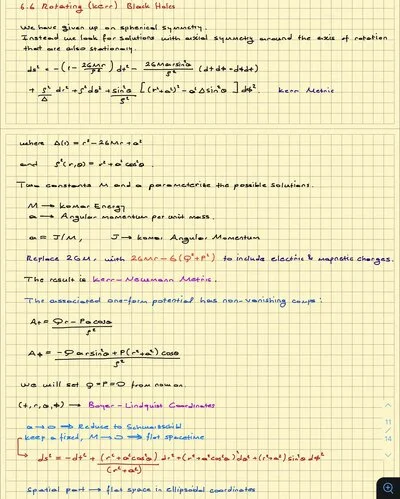 6.6 Rotating (Kerr) Black Holes
We have given up on spherical symmetry.
Instead we look for solutions with axial symmetry around the axis of rotation
that are also stationary.
ds² = -(1 - 2GMr/ρ²) dt² - 2GMar sin²θ/ρ² (dt dϕ + dϕ dt)
+ ρ²/Δ dr² + ρ² dθ² + sin²θ/ρ² [(r²+a²)² - a²Δ sin²θ] dϕ². Kerr Metric
where Δ(r) = r² - 2GMr + a²
and ρ²(r,θ) = r² + a² cos²θ.
Two constants M and a parameterize the possible solutions.
M → Komar Energy
a → Angular momentum per unit mass.
a = J/M, J → Komar Angular Momentum
Replace 2GM, with 2GMr - G(Q²+P²) to include electric & magnetic charges.
The result is Kerr-Newmann Metric.
The associated one-form potential has non-vanishing comps:
At = Qr - Pa cosθ / ρ²
Aϕ = -Qar sin²θ + P(r²+a²) cosθ / ρ²
We will set Q=P=0 from now on.
(t, r, θ, ϕ) → Boyer-Lindquist Coordinates
a → 0 → Reduce to Schwarzschild
keep a fixed, M → 0 → flat spacetime
ds² = -dt² + (r²+a²cos²θ)/(r²+a²) dr² + (r²+a²cos²θ)² dθ² + (r²+a²) sin²θ dϕ²
Spatial part → flat space in ellipsoidal coordinates
11
14